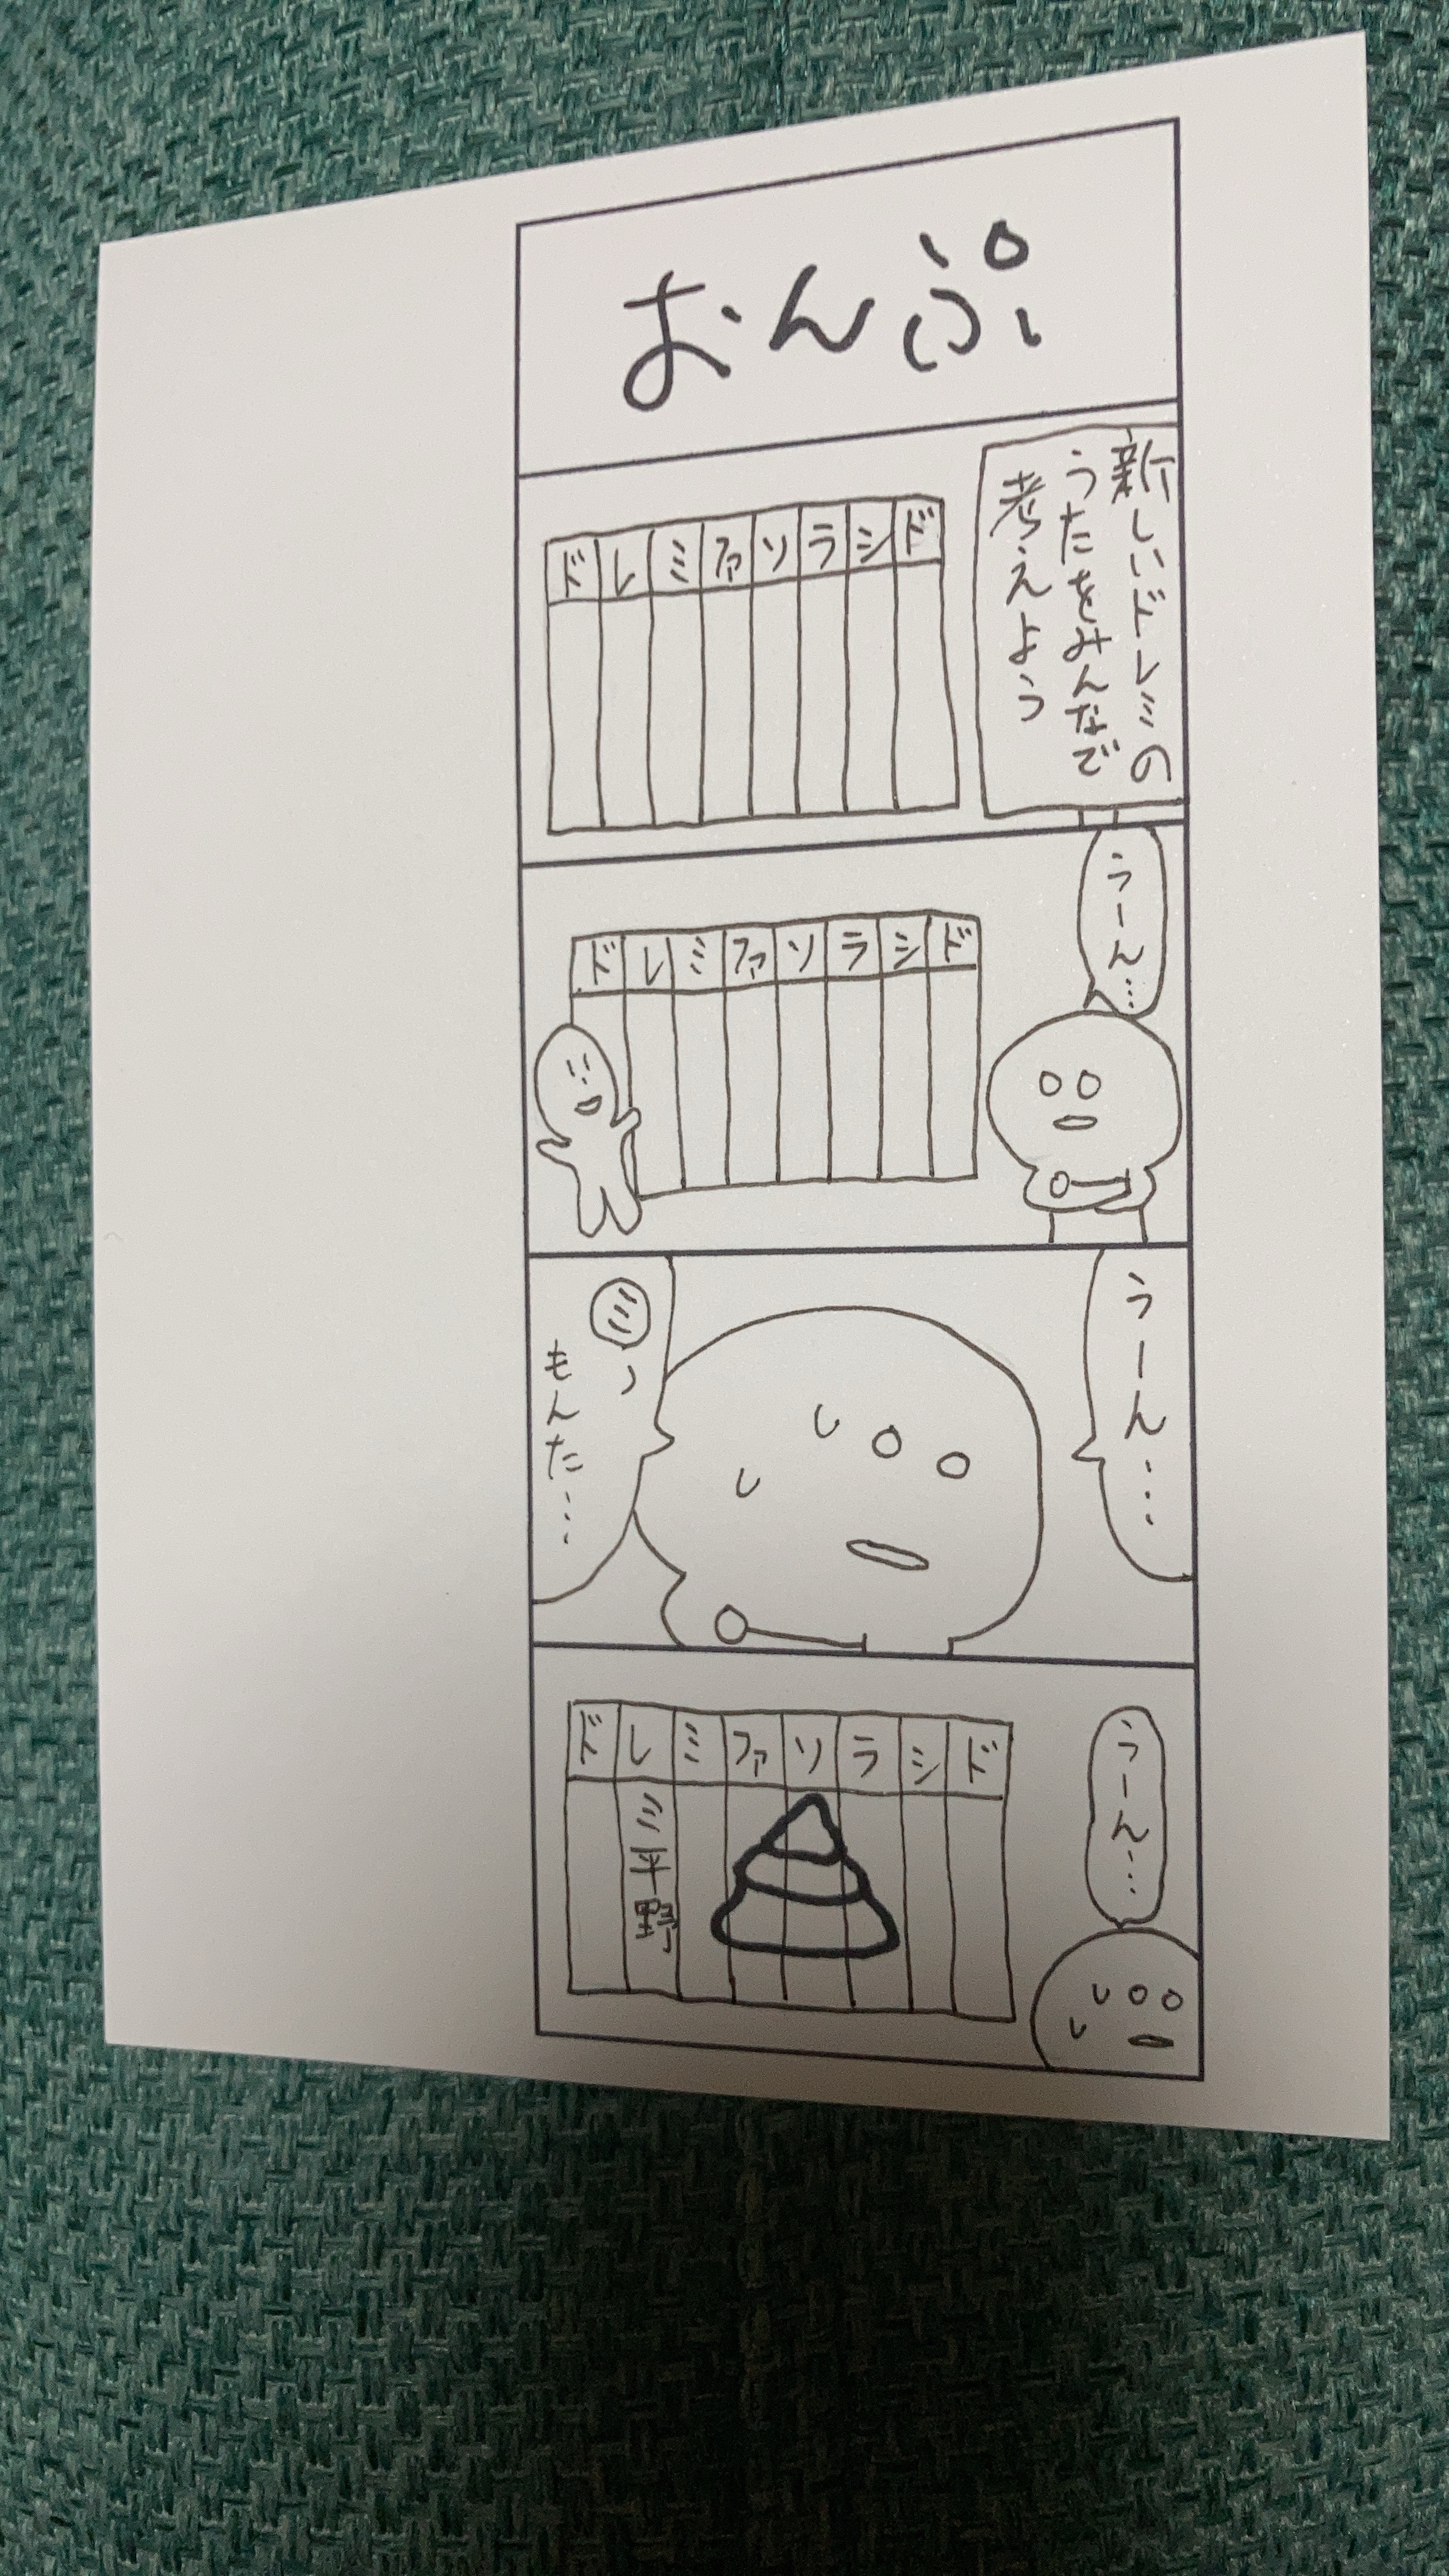 おんぷ
新しいドレミの
うたをみんなで
考えよう
ドレミファソラシド
うーん…
ドレミファソラシド
うーん…
ミ、
もんた…
うーん…
ドレミファソラシド